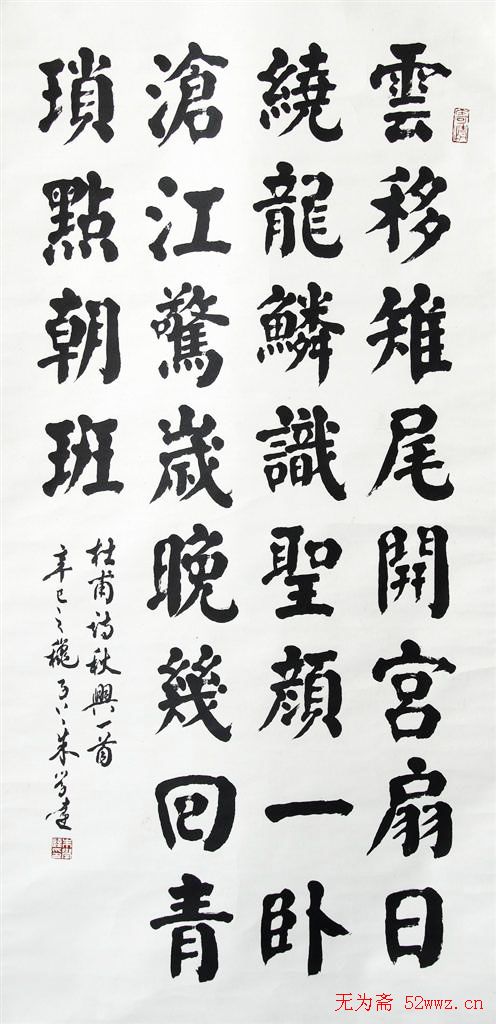 雲移雉尾開宮扇日
繞龍鱗識聖顏一卧
滄江驚歲晚幾回青
瑣點朝班
杜甫詩秋興一首
辛巳之秋 朱
无为斋 52wwz.cn